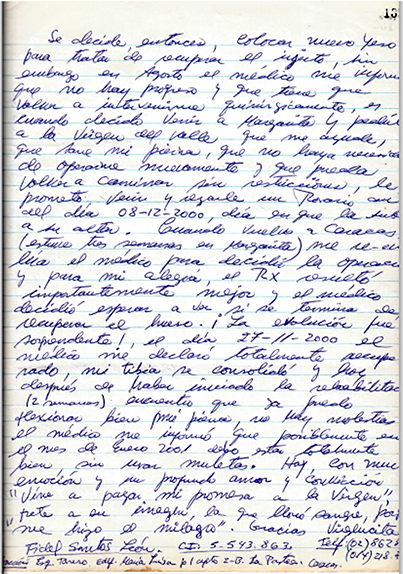 13
Se decide, entonces, colocar nuevo yeso
para tratar de recuperar el injerto, sin
embargo en Agosto el médico me informa
que no hay progreso y que tiene que
volver a intervenirme quirúrgicamente, es
cuando decido venir a Margarita y pedirle
a la Virgen del Valle que me ayude,
que sane mi pierna, que no haya necesidad
de operarme nuevamente y que pueda
volver a caminar sin restricciones, le
prometí venir y regalarle un Rosario
del día 08-12-2000, día en que la
a su altar. Cuando vuelvo a Caracas
(estuve tres semanas en Margarita) me
el médico para decidir la operación
y para mi alegría, el RX resultó
importantemente mejor y el médico
decidió esperar a ver si se termina de
recuperar el hueso. ¡La evolución fue
sorpendente!, el día 27-11-2000 el
médico me declaró totalmente recupe
rado, mi tibia se consolidó y hoy
después de haber iniciado la rehabilitación
(2 semanas) encuentro que ya puedo
flexionar bien mi pierna, no hay molestias
el médico me informó que posiblemente en
el mes de Enero 2001 debo estar totalmente
bien sin usar muletas. Hoy con mucha
emoción y un profundo amor y convicción
"Vine a pagar mi promesa a la Virgen",
frente a su imagen, la que lloró sangre,
"me hizo el milagro". Gracias Virgencita
Fidel Santos León. C.I: 5-543.863. Telf (02) 862
Esq. Edf. María Luisa p/ apto 2-B. La Pastora. Caracas. (014) 218